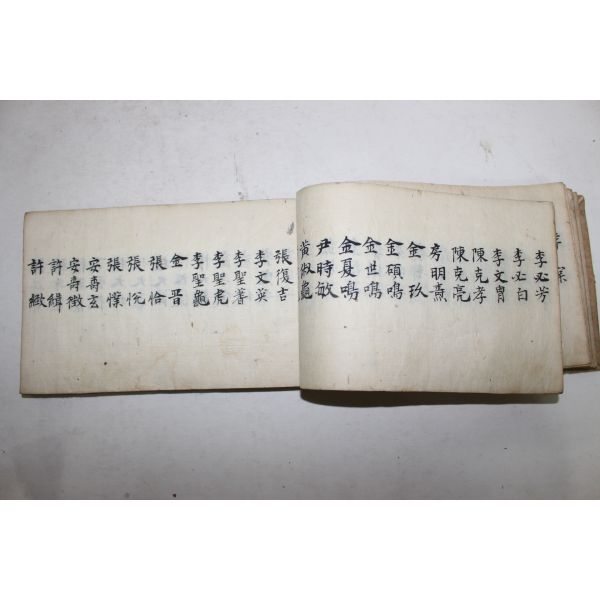 案
李必芳
李必白
李文胄
陳克孝
陳克亮
房明熹
金玖
金碩鳴
金世鳴
金夏鳴
尹時敏
黃似龜
張復吉
李文英
李聖蓍
李聖虎
李聖龜
金晋
張恰
張悅
張憡
安壽玄
安壽徵
許緯
許緻